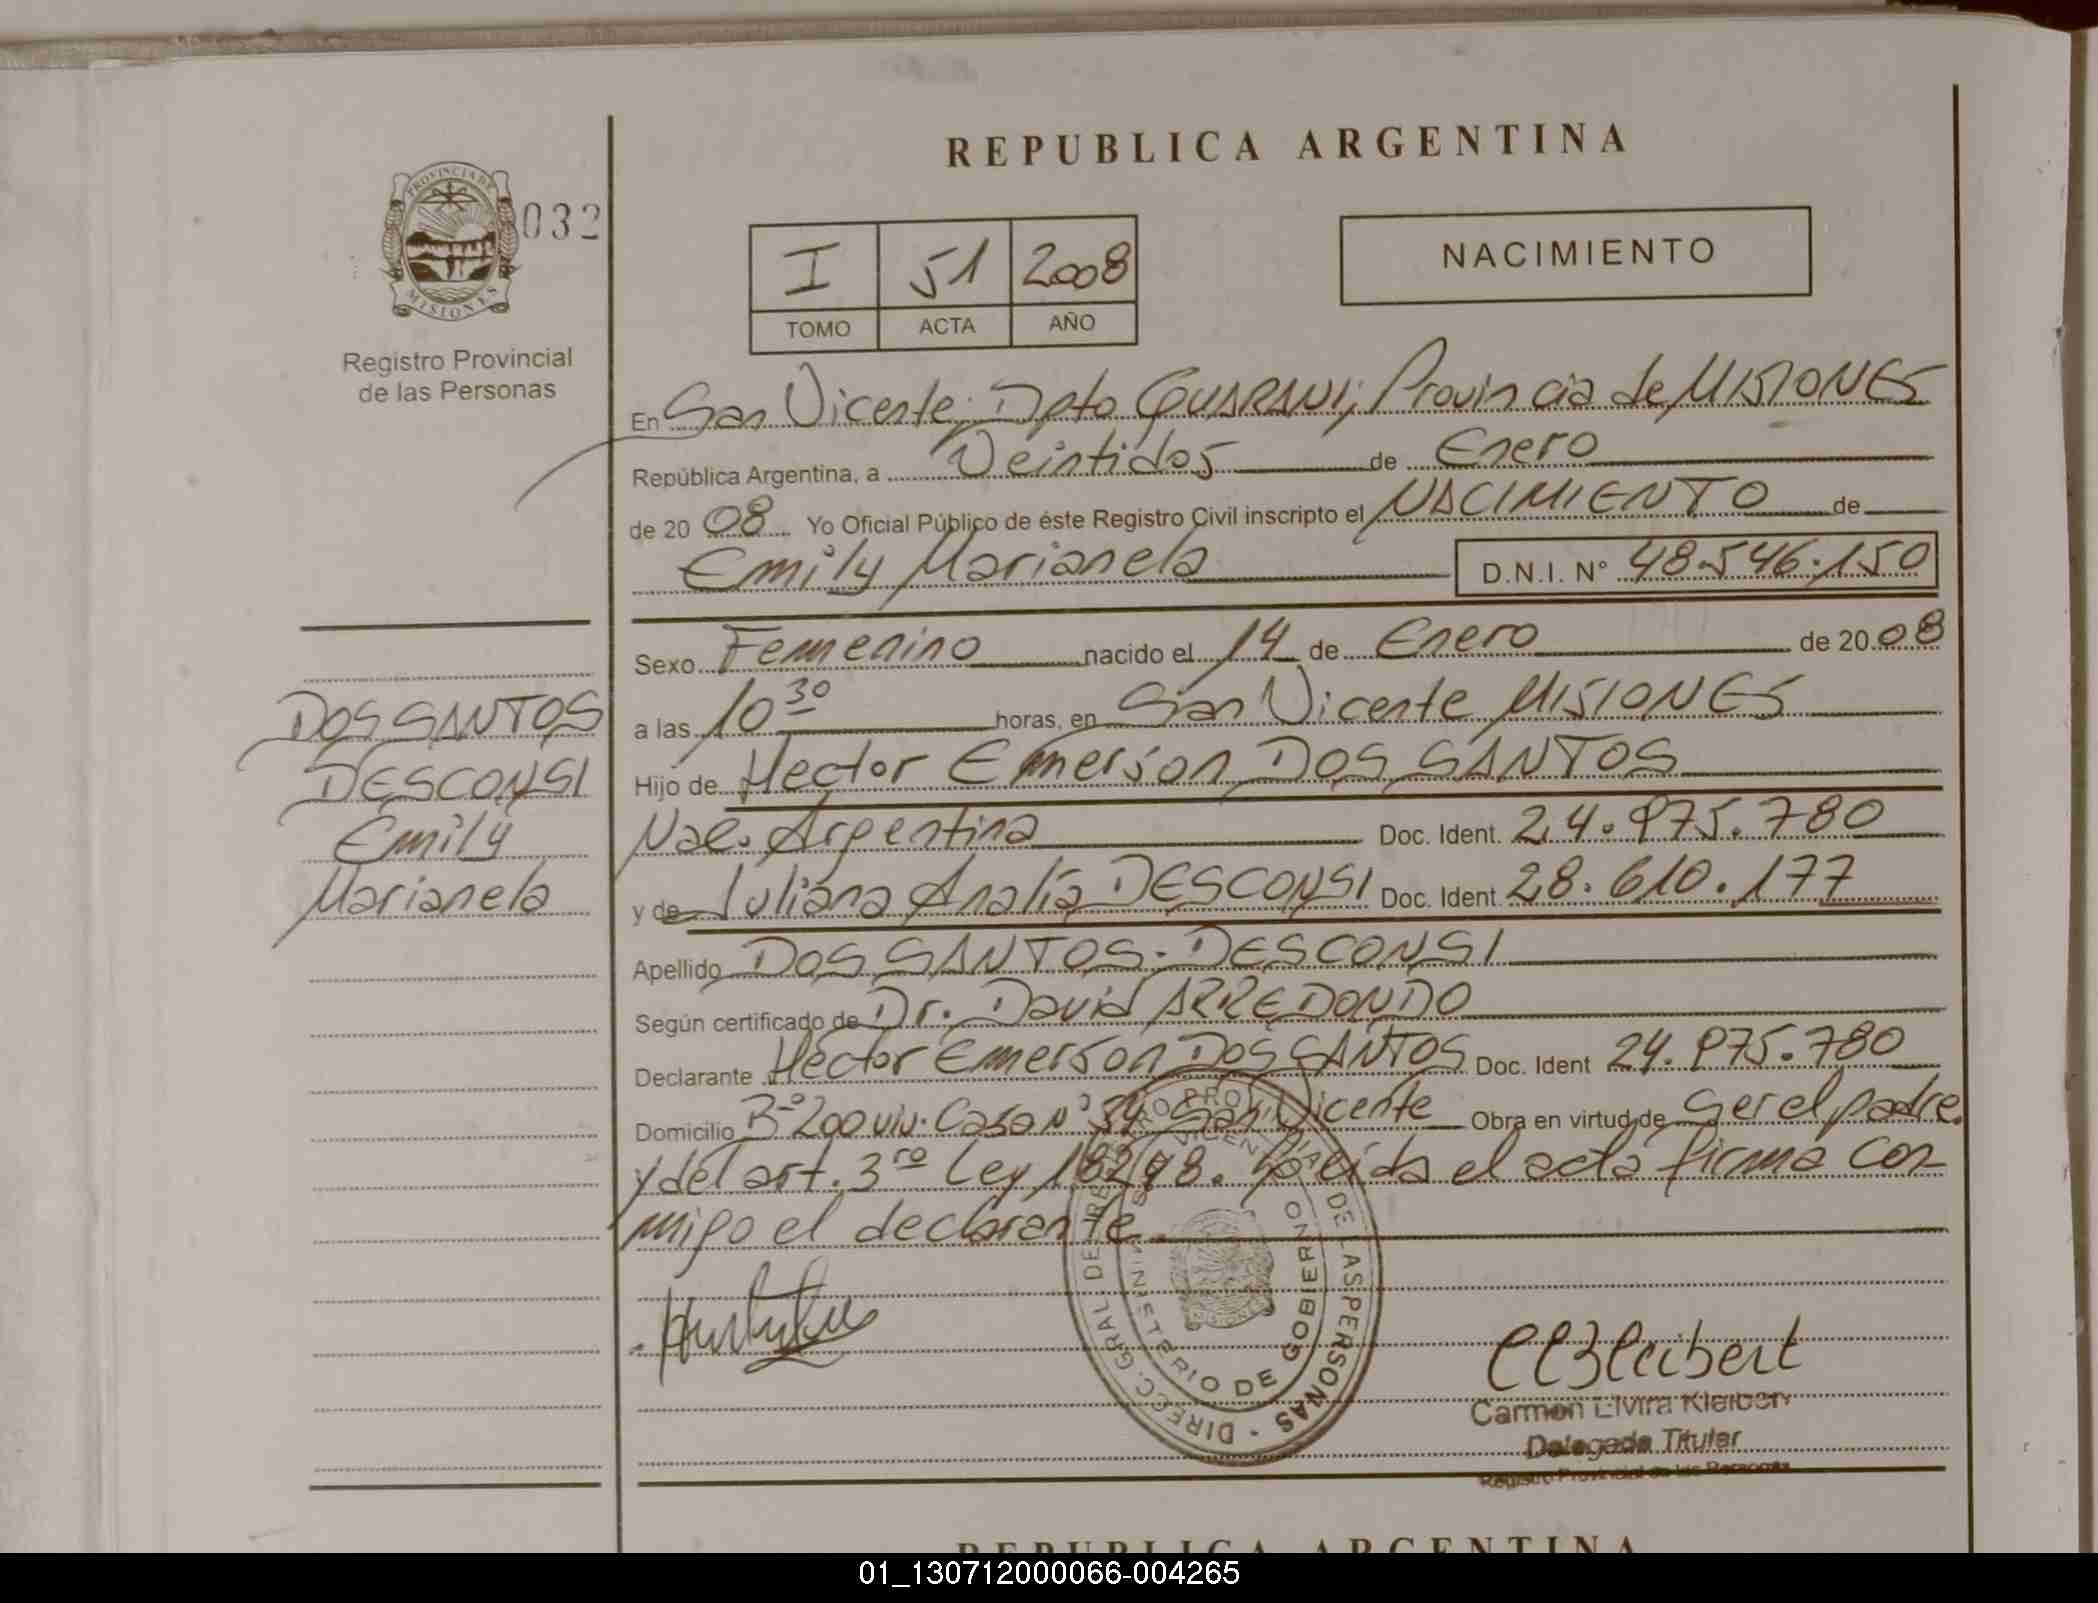 REPUBLICA ARGENTINA
PROVINCIA DE
MISIONES
032
Registro Provincial
de las Personas
I 51 2008
TOMO ACTA AÑO
NACIMIENTO
En San Vicente; Dpto GUARANI; Provincia de MISIONES
República Argentina, a Veintidos de Enero
de 20 08 Yo Oficial Público de éste Registro Civil inscripto el NACIMIENTO de
Emily Marianela D.N.I. Nº 48.546.150
Sexo Femenino nacido el 14 de Enero de 20 08
a las 10 30 horas, en San Vicente MISIONES
Hijo de Hector Emerson DOS SANTOS
Nac. Argentina Doc. Ident. 24.975.780
y de Juliana Analía DESCONSI Doc. Ident. 28.610.177
Apellido DOS SANTOS - DESCONSI
Según certificado de Dr. David ARREDONDO
Declarante Hector Emerson DOS SANTOS Doc. Ident 24.975.780
Domicilio Bº 200 viv. Casa Nº 34 San Vicente Obra en virtud de Ser el padre
y del art. 3ro Ley 18248. Leída el acta firma con
migo el declarante.
DOS SANTOS
DESCONSI
Emily
Marianela
DIRECC. GRAL. DE REGISTRO PROVINCIAL DE LAS PERSONAS
MINISTERIO DE GOBIERNO
SAN VICENTE
MISIONES
CEKleibert
Carmen Elvira Kleibert
Delegada Titular
Registro Provincial de las Personas
REPUBLICA ARGENTINA
01_130712000066-004265